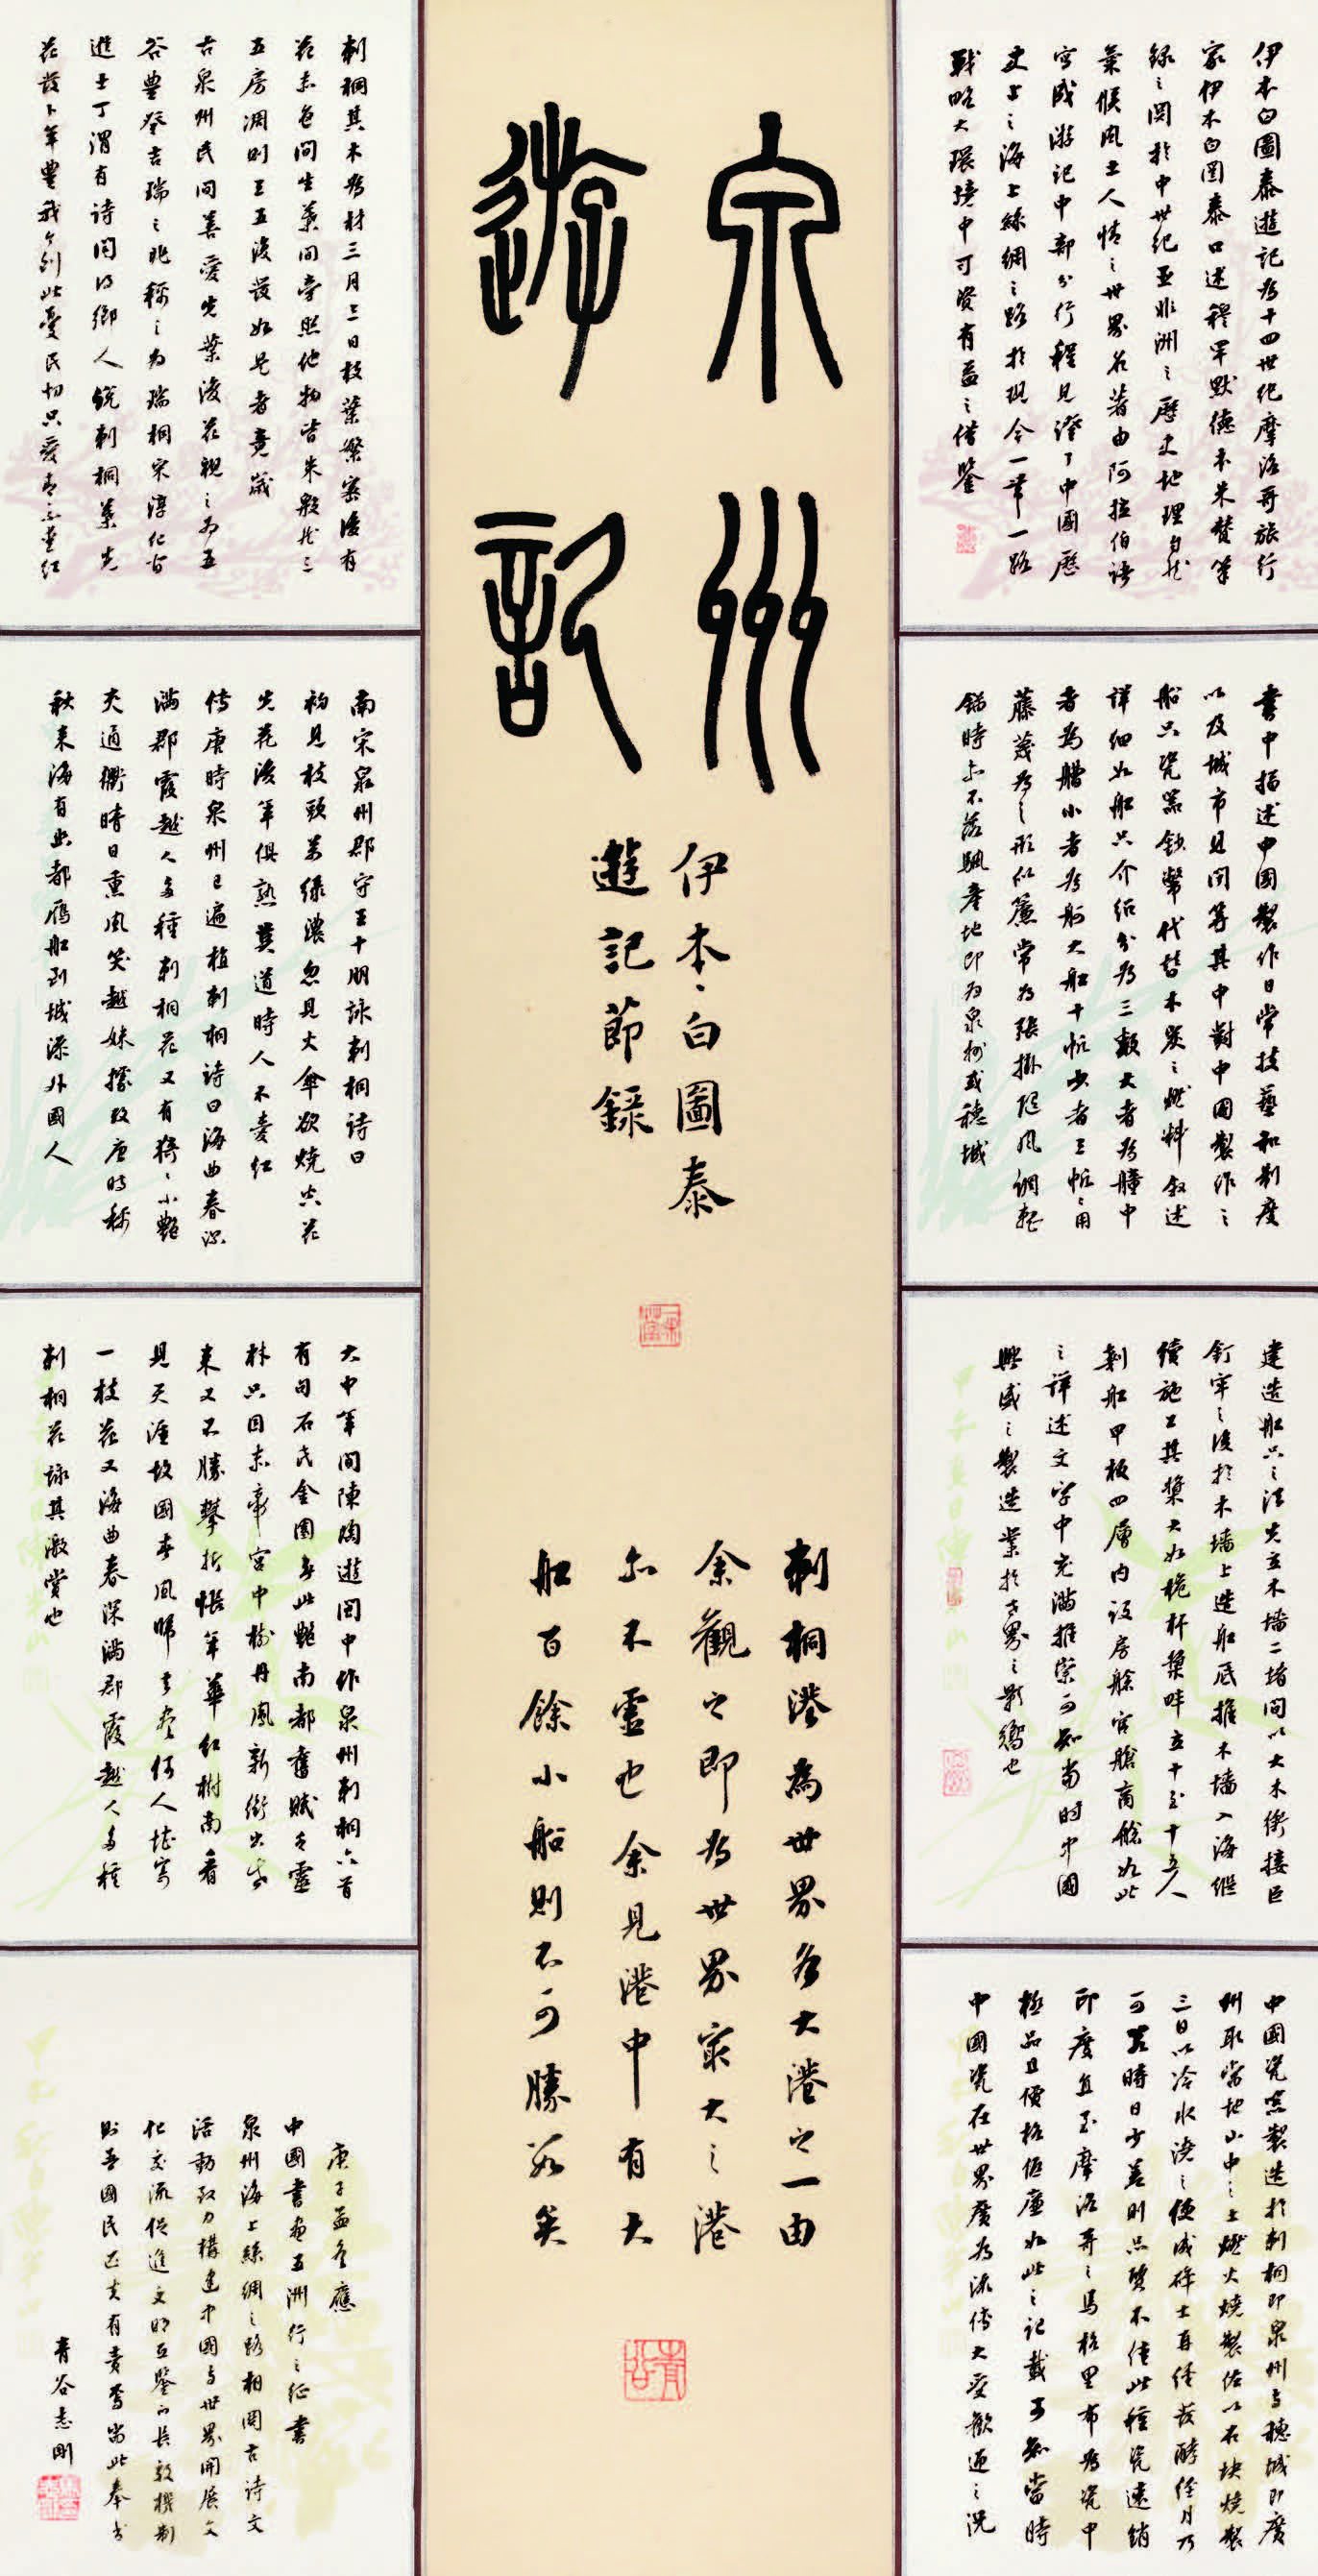 泉州
遊記
伊本·白圖泰
遊記節錄
刺桐港為世界各大港之一由
余觀之即為世界最大之港
亦不虛也余見港中有大
船百餘小船則不可勝數矣
伊本白圖泰遊記為十四世紀摩洛哥旅行
家伊本白圖泰口述穆罕默德本朱贊筆
錄之關於中世紀亞非洲之歷史地理自然
氣候風土人情之世界名著由阿拉伯語
寫成游記中部分行程見證了中國歷
史上之海上絲綢之路於現今一帶一路
戰略大環境中可資有益之借鑒
書中描述中國製作日常技藝和制度
以及城市見聞等其中對中國製作之
船只瓷器鈔幣代替木炭之燃料敘述
詳細如船只介紹分為三類大者為艟中
者為艚小者為舸大船十帆少者三帆帆用
藤篾為之形似簾常為張掛隨風調整
錨時亦不落帆產地即為泉州或穗城
建造船只之法先立木墻二堵間以大木銜接巨
釘牢之後於木墻上造船底推木墻入海繼
續施工其槳大如桅杆槳畔立十至十五人
製船甲板四層內設房艙官艙商艙如此
之詳述文字中充滿推崇可知當時中國
興盛之製造業於世界之影響也
中國瓷器製造於刺桐即泉州與穗城即廣
州取當地山中之土燃火燒製佐以石塊燒製
三日以冷水澆之便成碎土再經發酵經月乃
可若時日少差則品質不佳此種瓷遠銷
印度直至摩洛哥之馬格里布為瓷中
極品且價格低廉如此之記載可知當時
中國瓷在世界廣為流傳大受歡迎之況
刺桐其木為材三月三日枝葉繁密後有
花赤色間生葉間旁照他物皆朱殷然三
五房凋則三五後發如是者竟歲
古泉州民間喜愛先葉後花視之為五
谷豐登吉瑞之兆稱之為瑞桐宋淳化四
進士丁謂有詩聞得鄉人說刺桐葉先
花發卜年豐我今到此憂民切只愛青青不愛紅
南宋泉州郡守王十朋詠刺桐詩曰
初見枝頭萬綠濃忽見火傘欲燒空花
先花後年俱熟莫道時人不愛紅
傳唐時泉州已遍植刺桐詩曰海曲春深
滿郡霞越人多種刺桐花又有猗猗小艷
夾通衢晴日熏風笑越姝據改唐時稱
秋來海有幽都雁船到城添外國人
大中年間陳陶遊閩中作泉州刺桐六首
有句石氏金園無此艷南都舊賦乏靈
材只因赤帝宮中樹丹鳳新銜出世
來又不勝攀折悵年華紅樹南看
見天涯故國春風歸去盡何人堪寄
一枝花又海曲春深滿郡霞越人多種
刺桐花詠其激賞也
庚子孟冬應
中國書畫五洲行之征書
泉州海上絲綢之路相關古詩文
活動致力構建中國與世界開展文
化交流促進文明互鑒的長效機制
則吾國民匹夫有責焉耑此奉書
青谷志剛
青谷